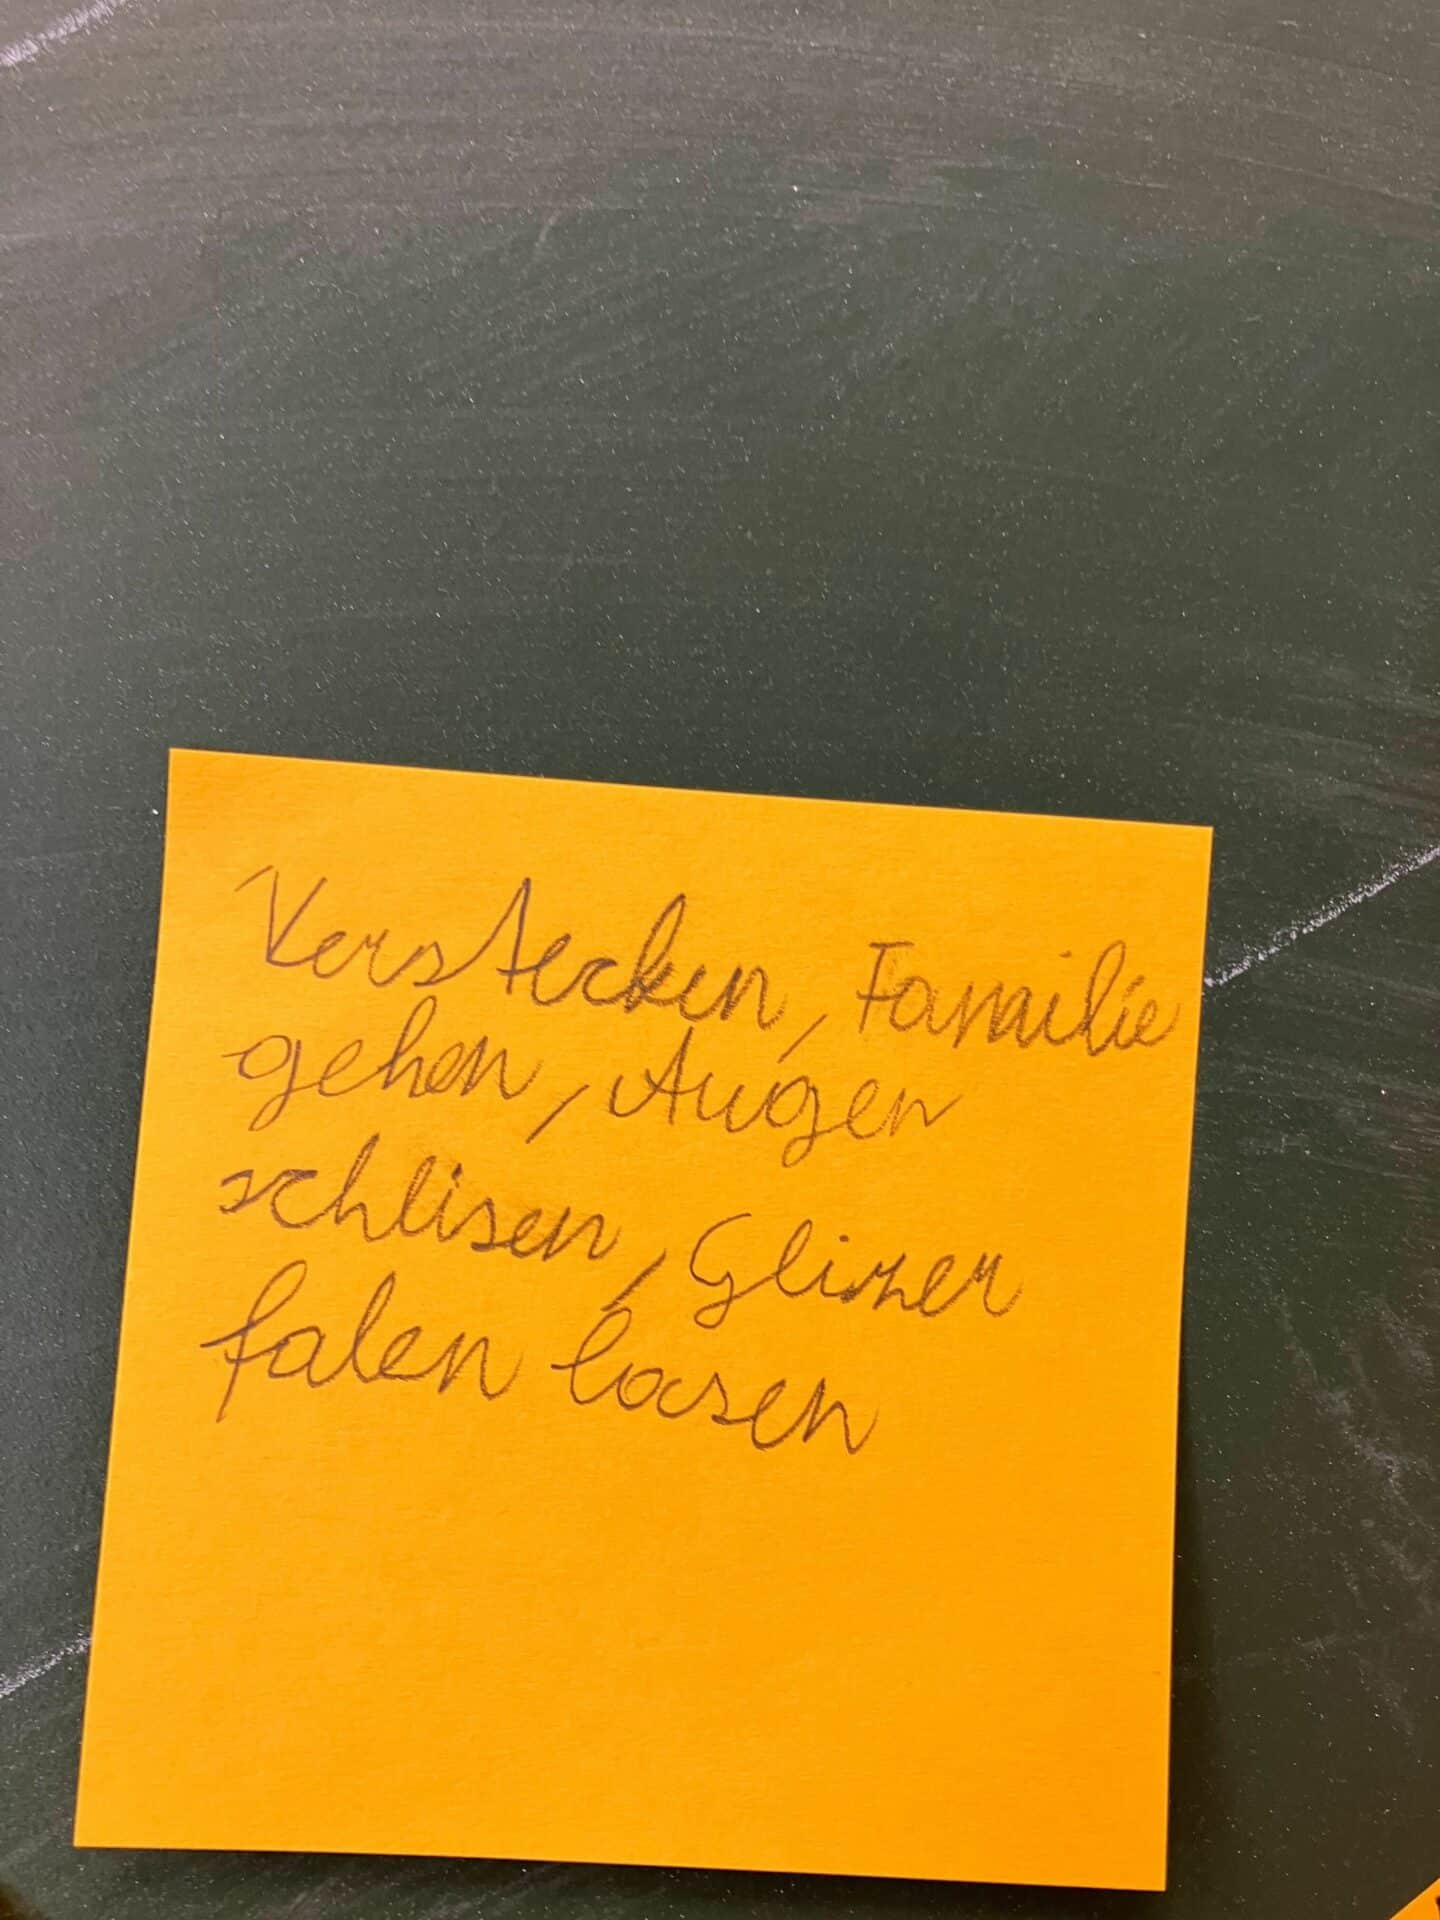 Verstecken, Familie
gehen, Augen
schlisen, Glizer
falen lasen